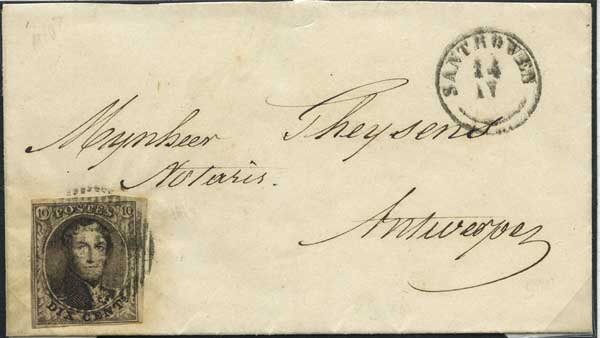 SANTHOVEN
14
IV
Mynheer Theysens
Notaris.
Antwerpen
10 POSTES 10
DIX CENTS